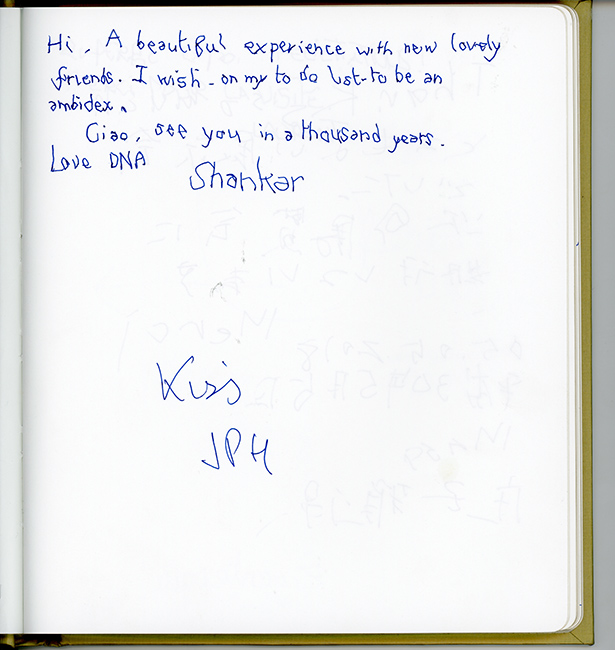 Hi. A beautiful experience with new lovely
friends. I wish - on my to do list - to be an
ambidex.
Ciao, see you in a thousand years.
Love DNA
Shankar
Kiss
JPH
Merci